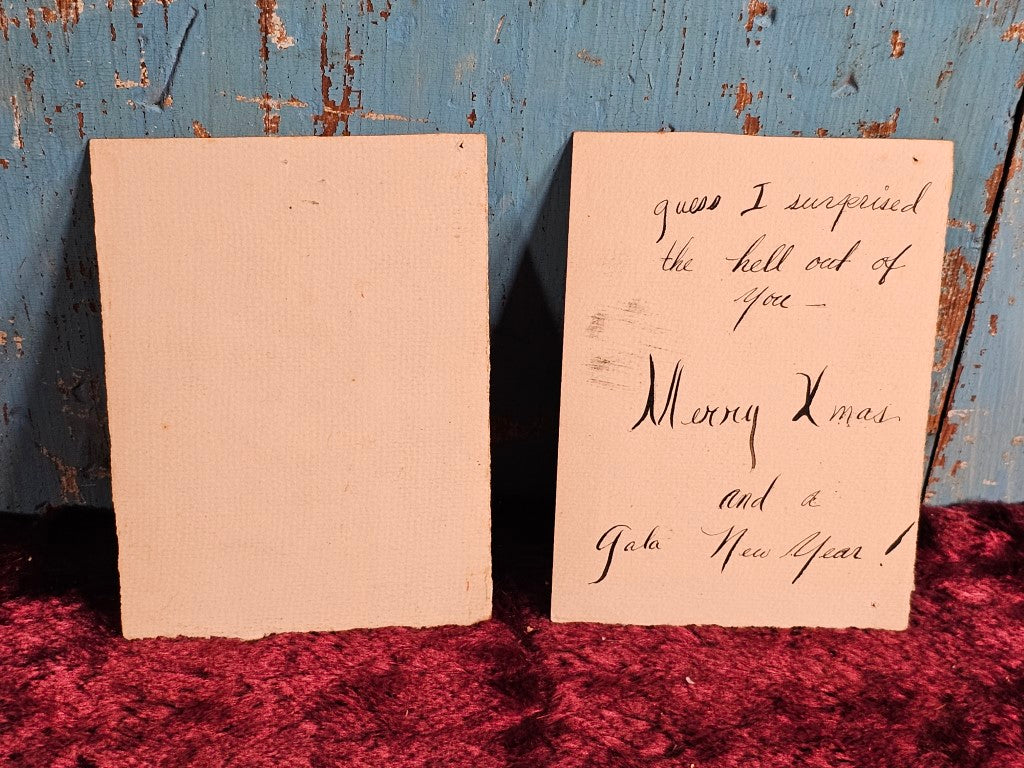 guess I surprised
the hell out of
you —
Merry Xmas
and a
Gala New Year!